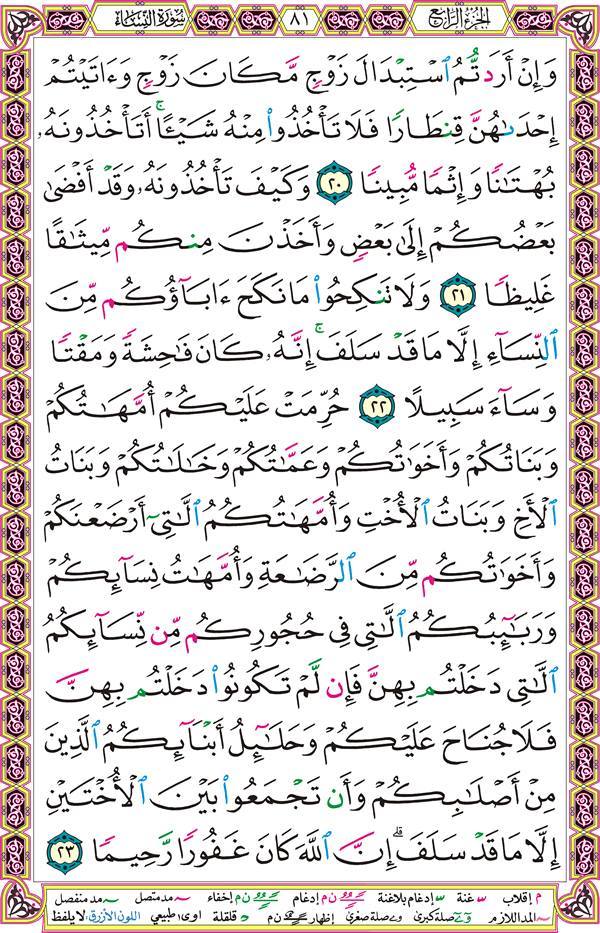 الجزء الرابع ٨١ سورة النساء
وَإِنْ أَرَدتُّمُ ٱسْتِبْدَالَ زَوْجٍ مَّكَانَ زَوْجٍ وَءَاتَيْتُمْ
إِحْدَىٰهُنَّ قِنطَارًا فَلَا تَأْخُذُوا۟ مِنْهُ شَيْـًٔا ۚ أَتَأْخُذُونَهُۥ
بُهْتَٰنًا وَإِثْمًا مُّبِينًا ٢٠ وَكَيْفَ تَأْخُذُونَهُۥ وَقَدْ أَفْضَىٰ
بَعْضُكُمْ إِلَىٰ بَعْضٍ وَأَخَذْنَ مِنكُم مِّيثَٰقًا
غَلِيظًا ٢١ وَلَا تَنكِحُوا۟ مَا نَكَحَ ءَابَآؤُكُم مِّنَ
ٱلنِّسَآءِ إِلَّا مَا قَدْ سَلَفَ ۚ إِنَّهُۥ كَانَ فَٰحِشَةً وَمَقْتًا
وَسَآءَ سَبِيلًا ٢٢ حُرِّمَتْ عَلَيْكُمْ أُمَّهَٰتُكُمْ
وَبَنَاتُكُمْ وَأَخَوَٰتُكُمْ وَعَمَّٰتُكُمْ وَخَٰلَٰتُكُمْ وَبَنَاتُ
ٱلْأَخِ وَبَنَاتُ ٱلْأُخْتِ وَأُمَّهَٰتُكُمُ ٱلَّٰتِىٓ أَرْضَعْنَكُمْ
وَأَخَوَٰتُكُم مِّنَ ٱلرَّضَٰعَةِ وَأُمَّهَٰتُ نِسَآئِكُمْ
وَرَبَٰٓئِبُكُمُ ٱلَّٰتِى فِى حُجُورِكُم مِّن نِّسَآئِكُمُ
ٱلَّٰتِى دَخَلْتُم بِهِنَّ فَإِن لَّمْ تَكُونُوا۟ دَخَلْتُم بِهِنَّ
فَلَا جُنَاحَ عَلَيْكُمْ وَحَلَٰٓئِلُ أَبْنَآئِكُمُ ٱلَّذِينَ
مِنْ أَصْلَٰبِكُمْ وَأَن تَجْمَعُوا۟ بَيْنَ ٱلْأُخْتَيْنِ
إِلَّا مَا قَدْ سَلَفَ ۗ إِنَّ ٱللَّهَ كَانَ غَفُورًا رَّحِيمًا ٢٣
م إقلاب غنة إدغام بلاغنة ن م إدغام ن م إخفاء مد متصل مد منفصل
المد اللازم صلة كبرى صلة صغرى إظهار ن م قلقلة اوى طبيعي اللون الأزرق: لا يلفظ